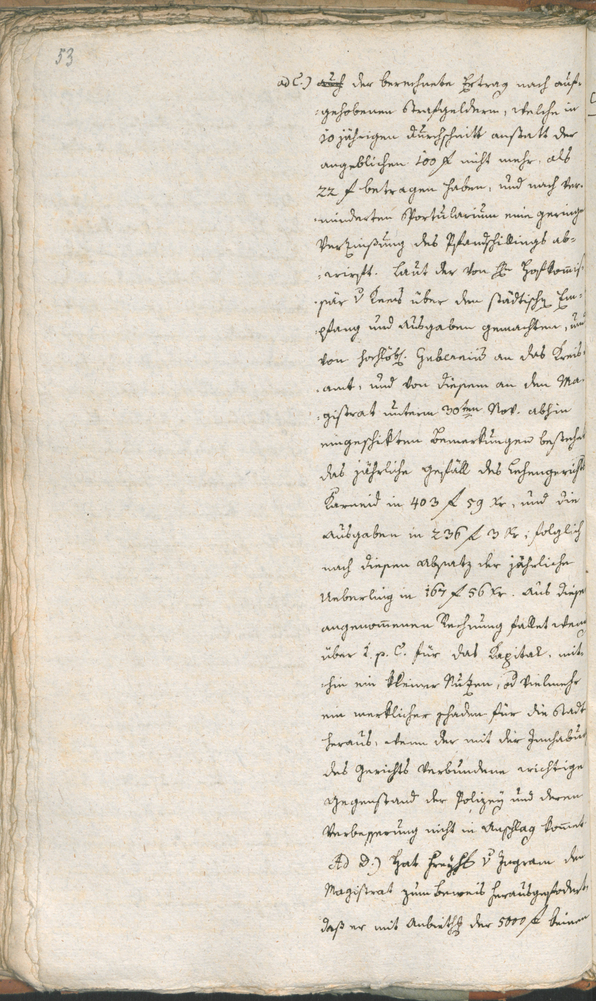 53
ad C.) auch der berechnete Ertrag nach auf-
gehobenen Strafgeldern, welche in
10 jährigen Durchschnitt anstatt der
angeblichen 100 f nicht mehr, als
22 f betragen haben, und nach ver-
minderten Sportularium eine geringe
Verzinsung des Pfandschillings ab-
wirft. Laut der von Hn Hofkommis-
sär v Kees über den städtischen Em-
pfang und Ausgaben gemachten, und
von hochlöbl. Gubernio an das Kreis-
amt, und von diesem an den Ma-
gistrat unterm 30ten Nov. abhin
eingeschikten Bemerkungen bestehet
das jährliche Gefäll des Lehengerichts
Karneid in 403 f 59 kr, und die
Ausgaben in 236 f 3 kr; folglich
nach diesen Absatz der jährliche
Ueberling in 167 f 56 kr. Aus dieser
angenommenen Rechnung fallet wenig
über 1. p. C. für das Kapital, mit-
hin ein kleiner Nutzen, od vielmehr
ein merklicher schaden für die Stadt
heraus, wenn der mit der Innhabung
des Gerichts verbundene wichtige
Gegenstand der Polizey und deren
Verbesserung nicht in Anschlag kommet
Ad D.) Hat Freyh v Ingram den
Magistrat zum Beweis herausgefodert,
daß er mit Anbiethg der 5000 f keinen